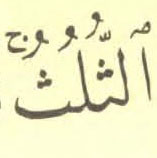 ٱلثُّلُثُ ۚ